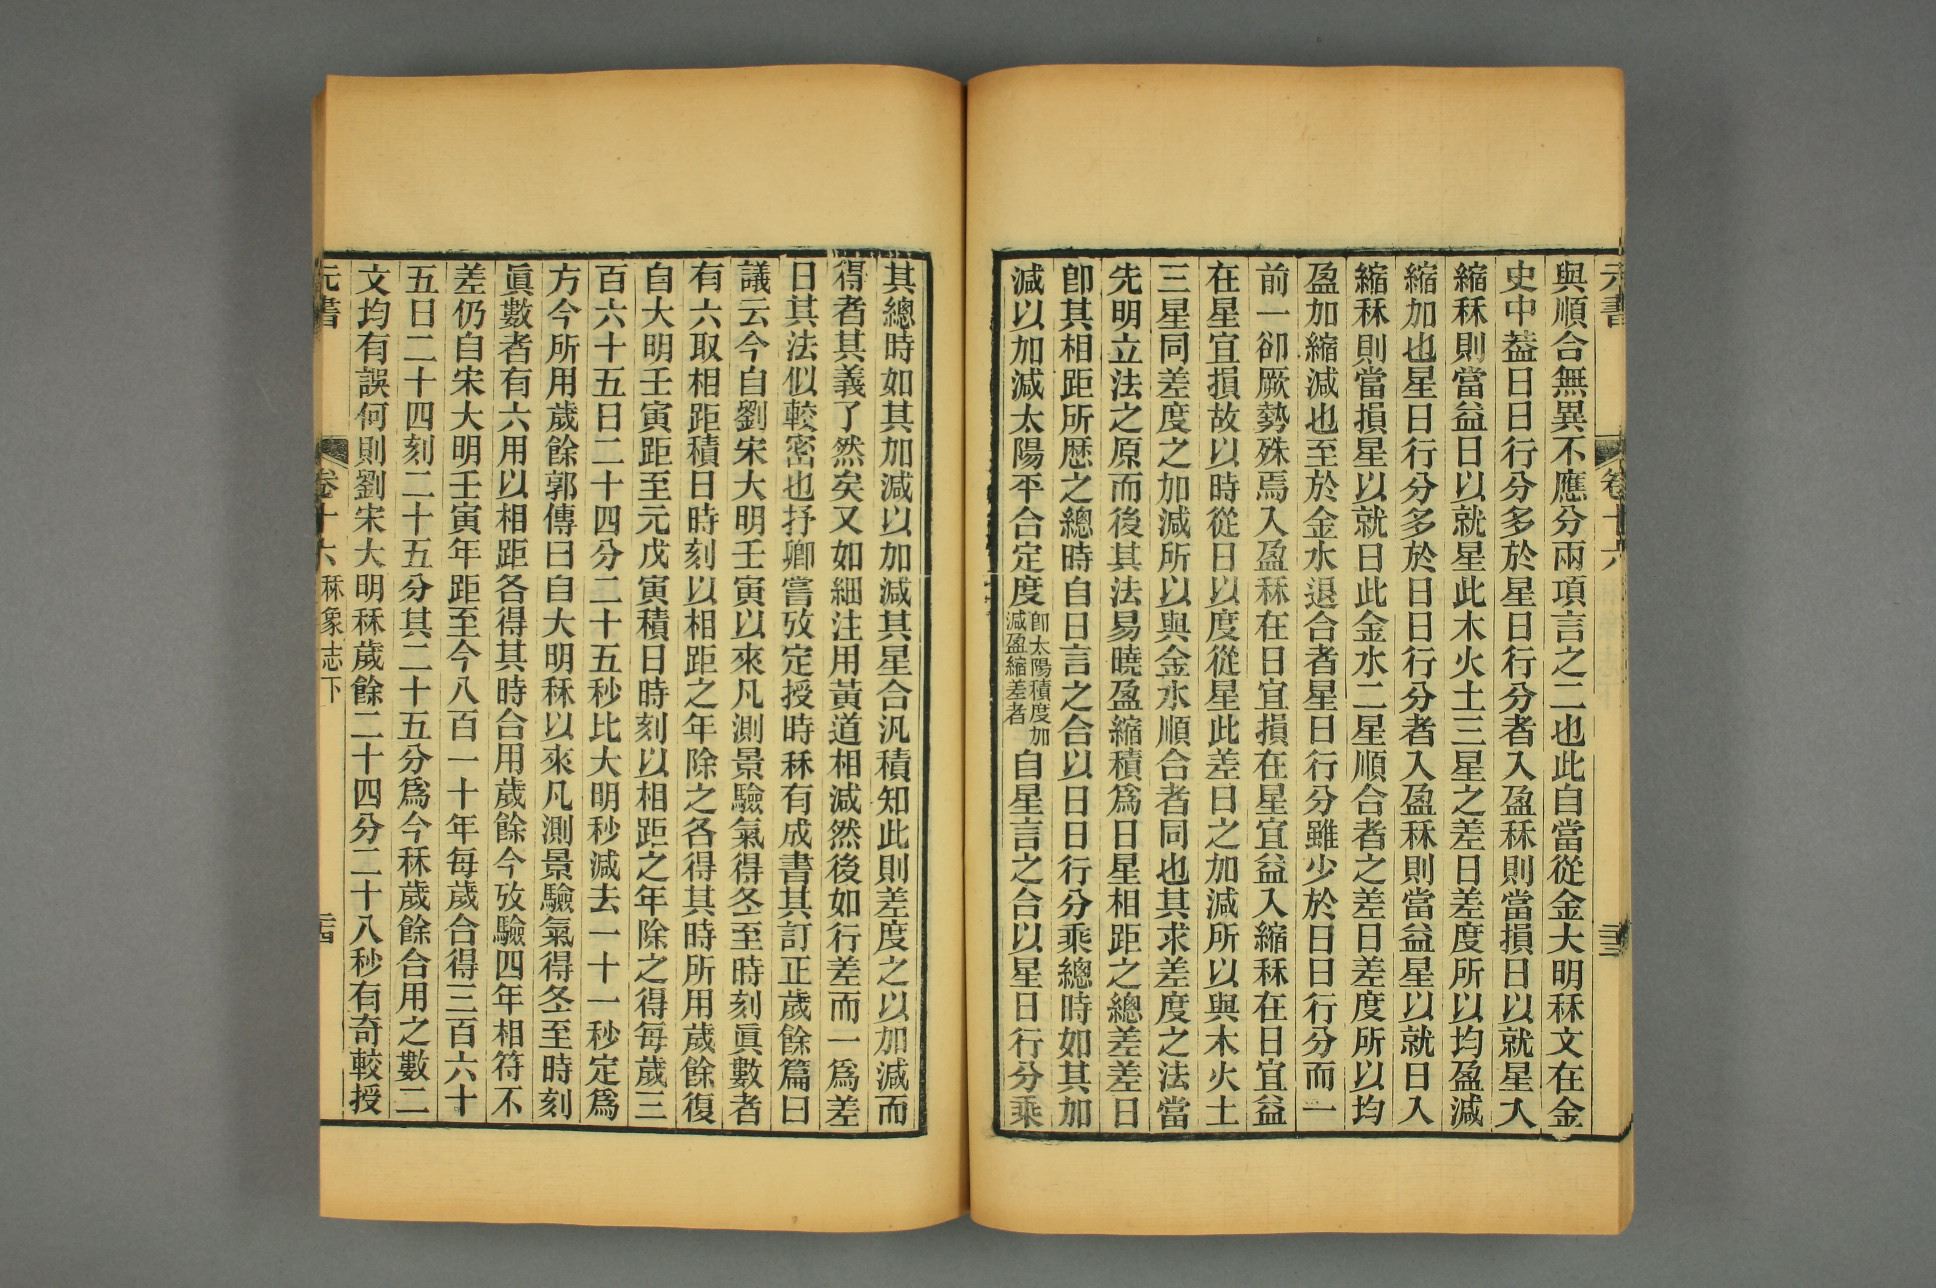 元書
卷十六
三三
與順合無異不應分兩項言之二也此自當從金大明秝文在金
史中葢日日行分多於星日行分者入盈秝則當損日以就星入
縮秝則當益日以就星此木火土三星之差日差度所以均盈減
縮加也星日行分多於日日行分者入盈秝則當益星以就日入
縮秝則當損星以就日此金水二星順合者之差日差度所以均
盈加縮減也至於金水退合者星日行分雖少於日日行分而一
前一卻厥勢殊焉入盈秝在日宜損在星宜益入縮秝在日宜益
在星宜損故以時從日以度從星此差日之加減所以與木火土
三星同差度之加減所以與金水順合者同也其求差度之法當
先明立法之原而後其法易曉盈縮積爲日星相距之總差差日
卽其相距所歷之總時自日言之合以日日行分乘總時如其加
減以加減太陽平合定度卽太陽積度加減盈縮差者自星言之合以星日行分乘
其總時如其加減以加減其星合汎積知此則差度之以加減而
得者其義了然矣又如細注用黃道相減然後如行差而一爲差
日其法似較密也抒卿嘗攷定授時秝有成書其訂正歲餘篇曰
議云今自劉宋大明壬寅以來凡測景驗氣得冬至時刻眞數者
有六取相距積日時刻以相距之年除之各得其時所用歲餘復
自大明壬寅距至元戊寅積日時刻以相距之年除之得每歲三
百六十五日二十四分二十五秒比大明秒減去一十一秒定爲
方今所用歲餘郭傳曰自大明秝以來凡測景驗氣得冬至時刻
眞數者有六用以相距各得其時合用歲餘今攷驗四年相符不
差仍自宋大明壬寅年距至今八百一十年每歲合得三百六十
五日二十四刻二十五分其二十五分爲今秝歲餘合用之數二
文均有誤何則劉宋大明秝歲餘二十四分二十八秒有奇較授
元書
卷十六
秝象志下
三四